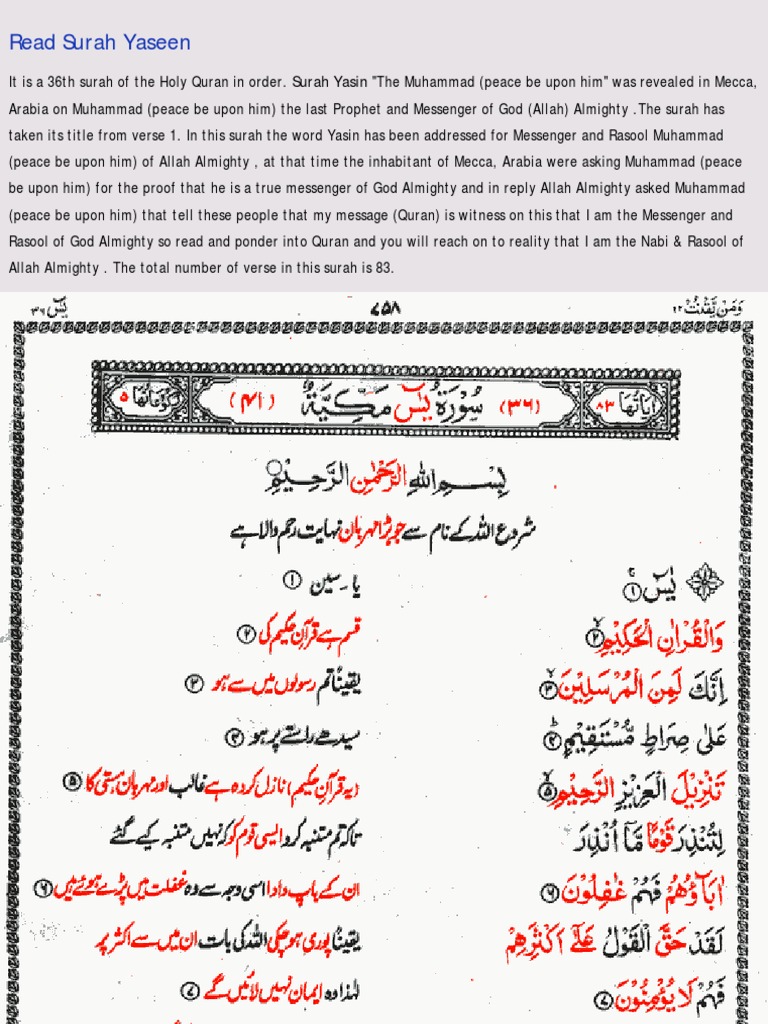 Read Surah Yaseen
It is a 36th surah of the Holy Quran in order. Surah Yasin "The Muhammad (peace be upon him" was revealed in Mecca,
Arabia on Muhammad (peace be upon him) the last Prophet and Messenger of God (Allah) Almighty .The surah has
taken its title from verse 1. In this surah the word Yasin has been addressed for Messenger and Rasool Muhammad
(peace be upon him) of Allah Almighty , at that time the inhabitant of Mecca, Arabia were asking Muhammad (peace
be upon him) for the proof that he is a true messenger of God Almighty and in reply Allah Almighty asked Muhammad
(peace be upon him) that tell these people that my message (Quran) is witness on this that I am the Messenger and
Rasool of God Almighty so read and ponder into Quran and you will reach on to reality that I am the Nabi & Rasool of
Allah Almighty . The total number of verse in this surah is 83.
وَمَنْ يَّقْنُتْ ۲۲ ۷۵۸ يٰسٓ ۳۶
اٰيَاتُهَا ۸۳ (۳۶) سُوْرَةُ يٰسٓ مَكِّيَّةٌ (۴۱) رُكُوْعَاتُهَا ۵
بِسْمِ اللهِ الرَّحْمٰنِ الرَّحِيْمِ
شروع اللہ کے نام سے جو بڑا مہربان نہایت رحم والا ہے
يٰسٓ ۱ یا۔سین ۱
وَالْقُرْاٰنِ الْحَكِيْمِ ۲ قسم ہے قرآنِ حکیم کی ۲
اِنَّكَ لَمِنَ الْمُرْسَلِيْنَ ۳ یقیناً تم رسولوں میں سے ہو ۳
عَلٰى صِرَاطٍ مُّسْتَقِيْمٍ ۴ سیدھے راستے پر ہو ۴
تَنْزِيْلَ الْعَزِيْزِ الرَّحِيْمِ ۵ (یہ قرآنِ حکیم) نازل کردہ ہے غالب اور مہربان ہستی کا ۵
لِتُنْذِرَ قَوْمًا مَّآ اُنْذِرَ تاکہ تم متنبہ کرو ایسی قوم کو کہ نہیں متنبہ کیے گئے
اٰبَآؤُهُمْ فَهُمْ غٰفِلُوْنَ ۶ ان کے باپ دادا اسی وجہ سے وہ غفلت میں پڑے ہوئے ہیں ۶
لَقَدْ حَقَّ الْقَوْلُ عَلٰٓى اَكْثَرِهِمْ یقیناً پوری ہوچکی اللہ کی بات ان میں سے اکثر پر
فَهُمْ لَا يُؤْمِنُوْنَ ۷ لہٰذا وہ ایمان نہیں لائیں گے ۷